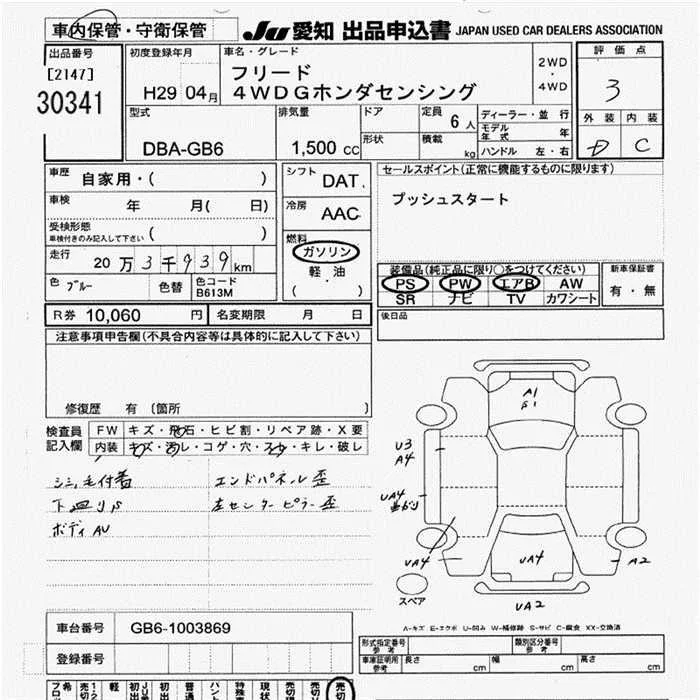 車内保管・守衛保管
JU 愛知 出品申込書 JAPAN USED CAR DEALERS ASSOCIATION
出品番号
[2147]
30341
初度登録年月
H29 04月
車名・グレード
フリード
4WDGホンダセンシング
2WD
・
4WD
評価点
3
外装 内装
D C
型式
DBA-GB6
排気量
1,500 cc
ドア
形状
定員
6人
積載
kg
ディーラー・並行
モデル年式 年
ハンドル 左・右
車歴
自家用・( )
車検
年 月( 日)
受検形態
車検付きのみ記入して下さい ( )
走行
20万3千939km
色 ブルー
色替
色コード
B613M
シフト
DAT
冷房
AAC
燃料
ガソリン
・
軽油
・
( )
セールスポイント(正常に機能するものに限ります)
プッシュスタート
装備品(純正品に限り○をつけてください)
PS PW エアB AW
SR ナビ TV カワシート
新車保証書
有・無
R券 10,060 円
名変期限 月 日
後日品
注意事項申告欄(不具合内容等は具体的に記入して下さい)
修復歴 有 〔箇所 〕
検査員
記入欄
FW キズ・飛石・ヒビ割・リペア跡・X要
内装 キズ・汚レ・コゲ・穴・スレ・キレ・破レ
シミ、毛付着
下廻りS
ボディAU
エンドパネル歪
左センターピラー歪
A1
U3
A4
UA4
UA4
UA4
A2
UA2
スペア
A-キズ E-エクボ U-凹み W-補修跡 S-サビ C-腐食 XX-交換済
車台番号
GB6-1003869
登録番号
型式指定番号
参考
類別区分番号
参考
車庫証明用
参考
長さ cm
幅 cm
高さ cm